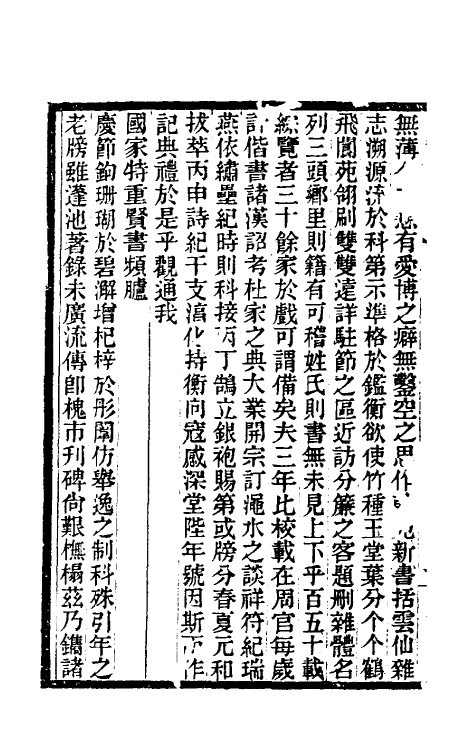 無薄 有愛博之癖無鑿空之思作 新書括雲仙雜
志溯源流於科第示準格於鑑衡欲使竹種玉堂葉分个个鶴
飛閬苑翎刷雙雙遠詳駐節之區近訪分簾之客題刪雜體名
列三頭鄉里則籍有可稽姓氏則書無未見上下乎百五十載
綜覽者三十餘家於戲可謂備矣夫三年比校載在周官每歲
計偕書諸漢詔考杜家之典大業開宗訂澠水之談祥符紀瑞
燕依繡壘紀時則科接丙丁鵠立銀袍賜第或牓分春夏元和
拔萃丙申詩紀干支滇化持衡向寇感深堂陛年號因斯而作
記典禮於是乎觀通我
國家特重賢書頻臚
慶節鉤珊瑚於碧澥增杞梓於彤闈仿舉逸之制科殊引年之
老牓雖蓬池著錄未廣流傳卽槐市刊碑尙艱橅榻茲乃鐫諸